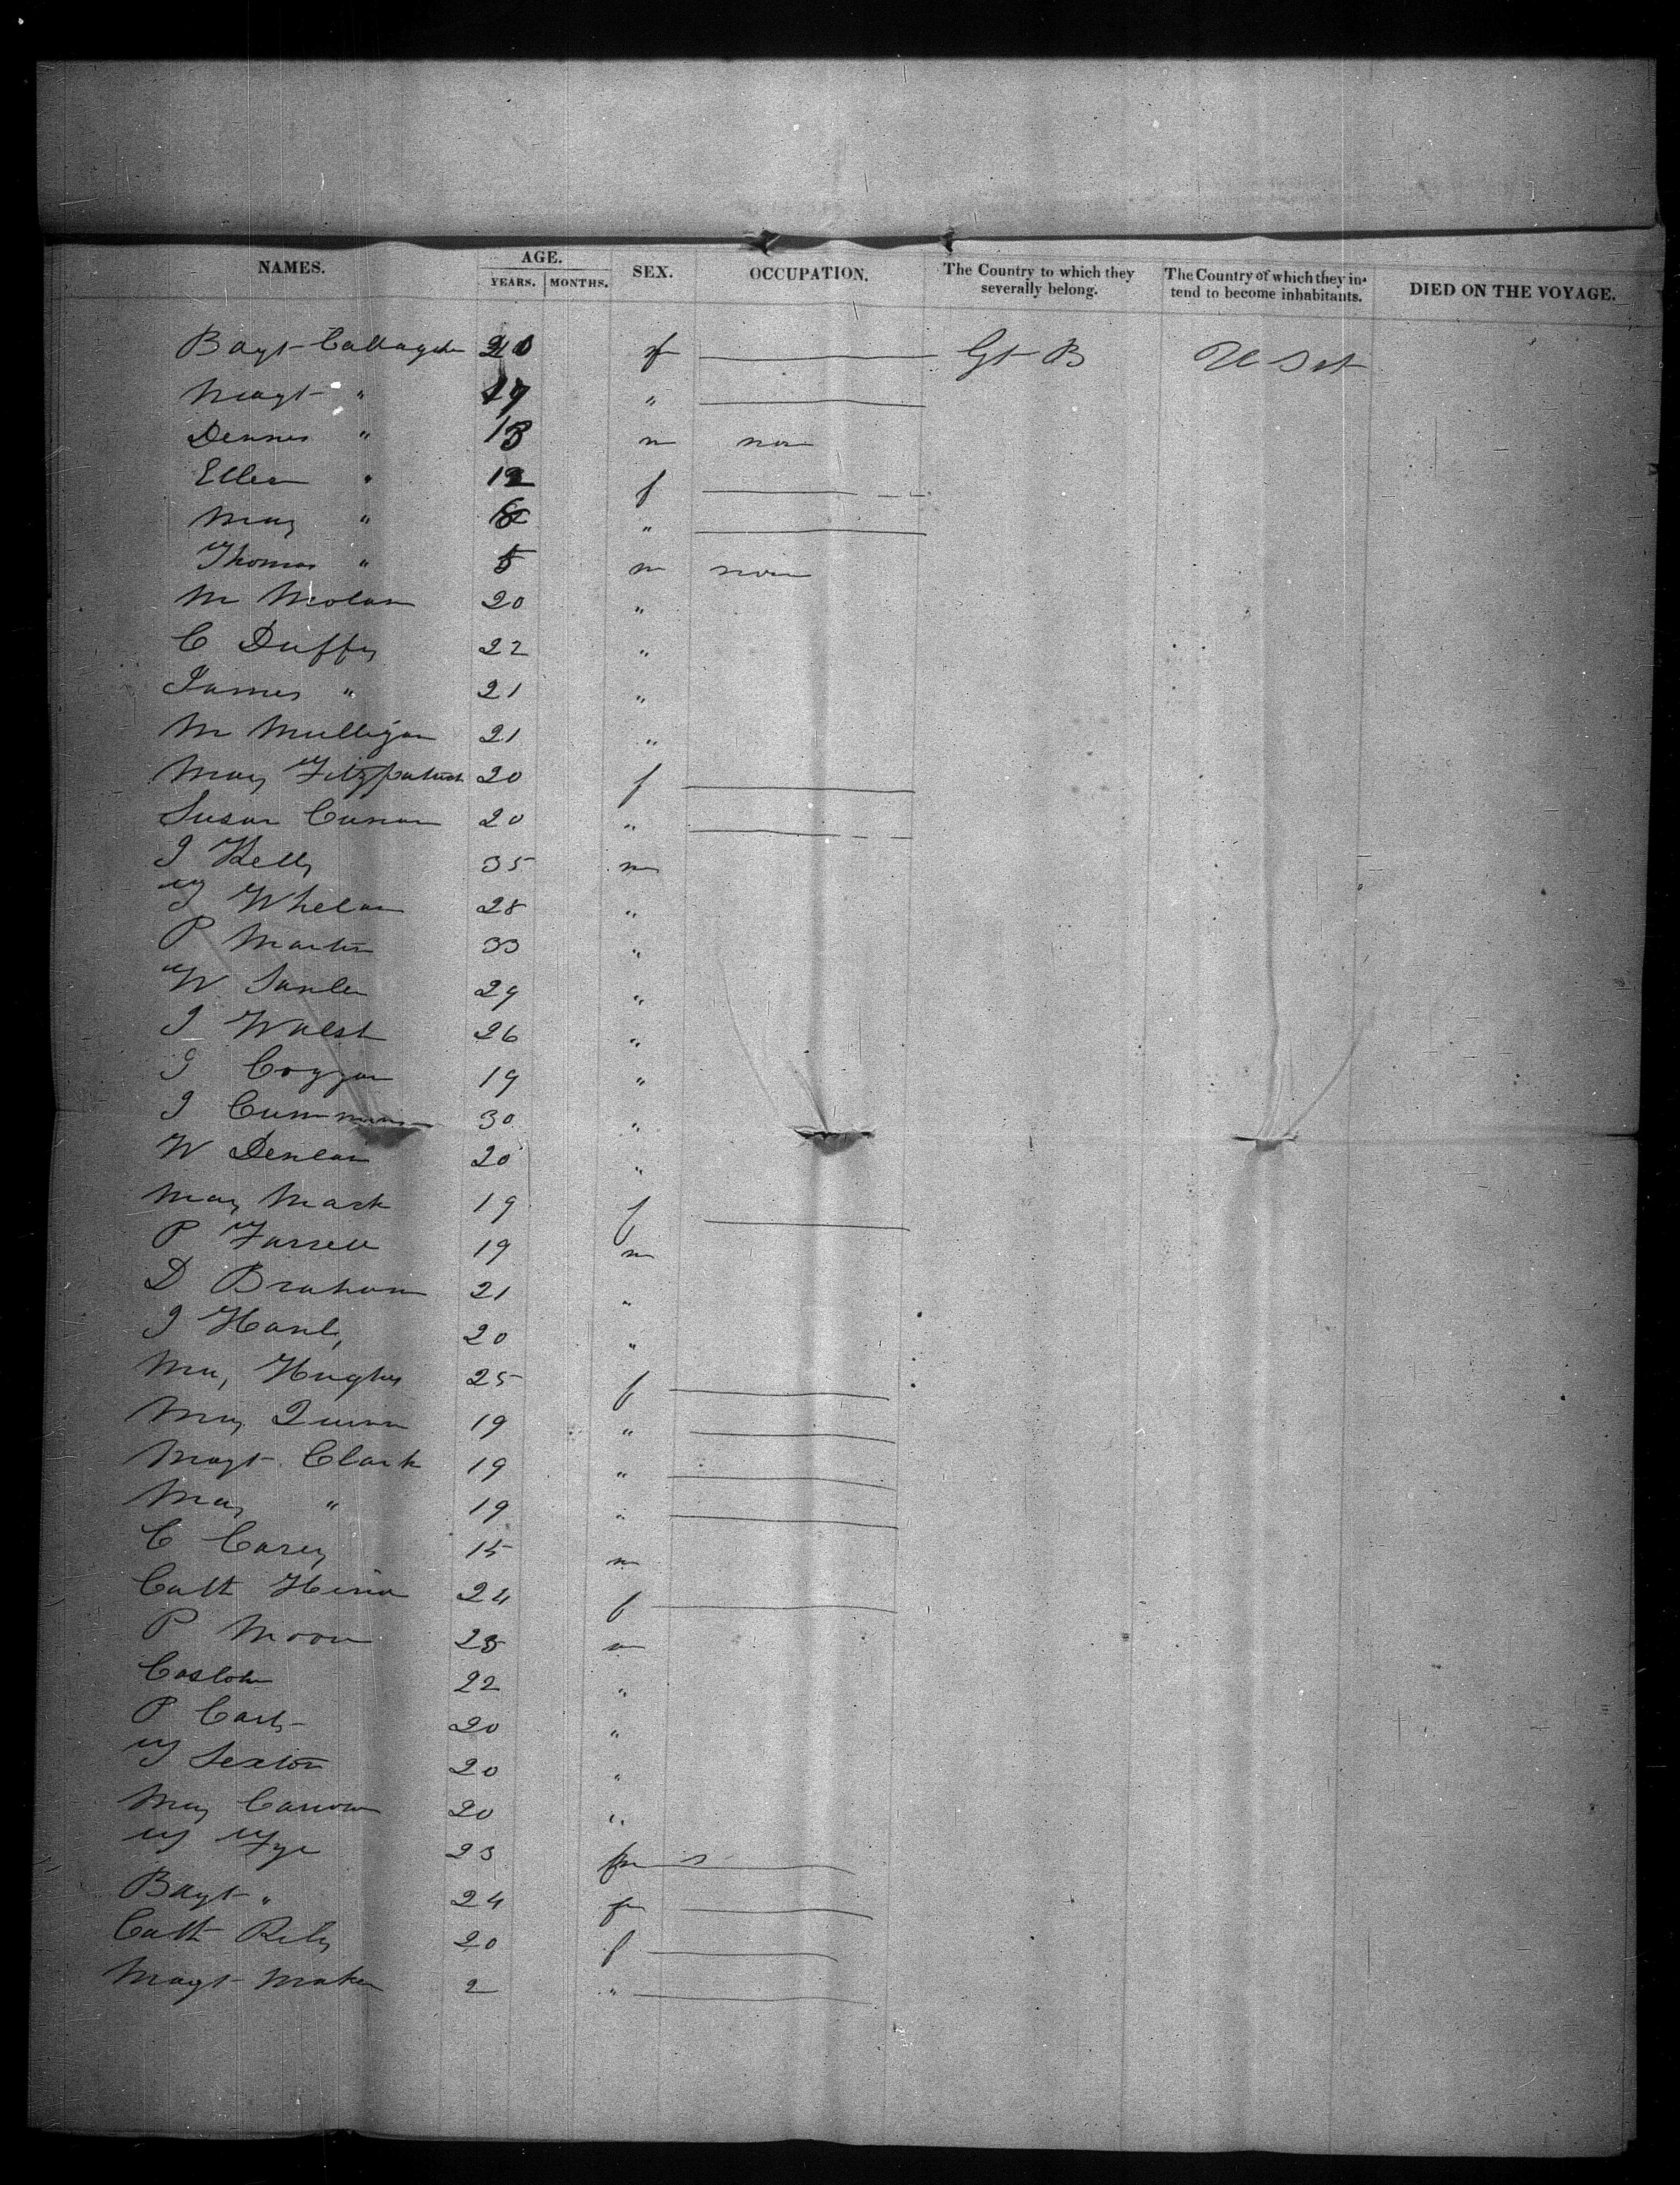 NAMES. AGE. YEARS. MONTHS. SEX. OCCUPATION. The Country to which they severally belong. The Country of which they intend to become inhabitants. DIED ON THE VOYAGE.
Bagt Callaghn f Gt B U St
Magt " 17 "
Dennis " 13 m non
Ellen " 12 f
Mary " "
Thomas " 5 m non
M Molan 20 "
C Duffy 22 "
James " 21 "
M Mulligan 21 "
Mary Fitzpatrick 20 f
Susan Cunan 20 "
J Kelly 35 m
T Whelan 28 "
P Martin 33 "
W 29 "
J Walsh 26 "
J Coggan 19 "
J 30 "
W Denlan 20 "
Mary Mark 19 f
P Farrell 19 m
D Braham 21 "
J Hanly 20 "
Mary Hughes 25 f
Mary Quinn 19 "
Magt Clark 19 "
Mary " 19 "
C Carey 15 m
Cath 24 f
P Moon m
22 "
P 20 "
T Sexton 20 "
Mary 20 "
T Fye 23
Bagt " 24 f
Cath Rily 20 f
Magt Maken 2 "